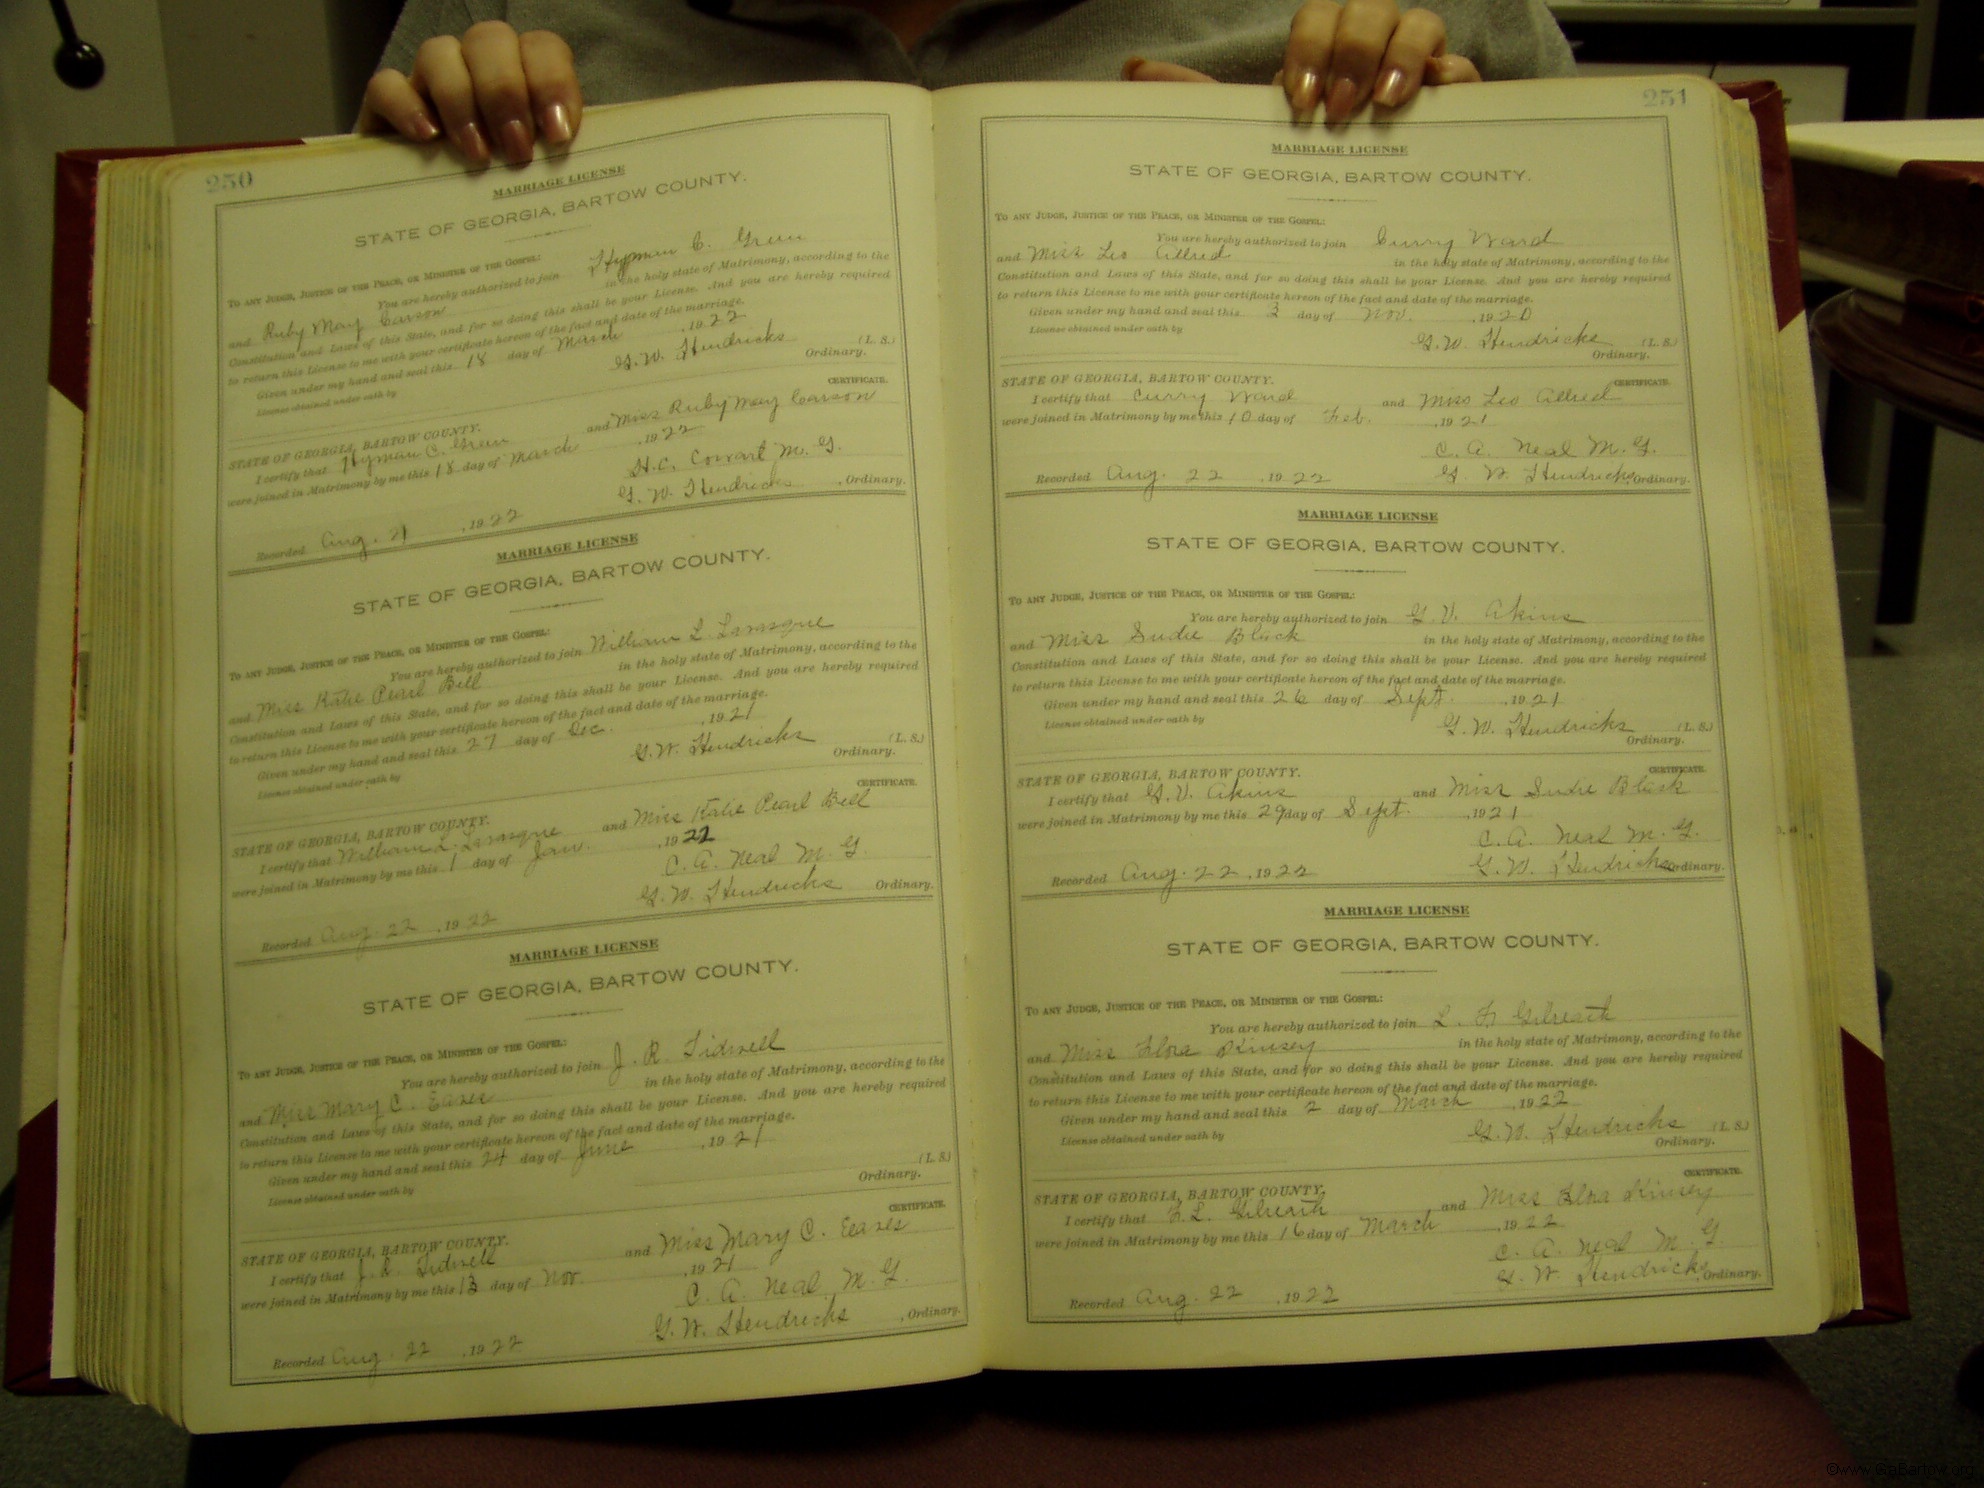 250
MARRIAGE LICENSE
STATE OF GEORGIA, BARTOW COUNTY.
TO ANY JUDGE, JUSTICE OF THE PEACE, OR MINISTER OF THE GOSPEL:
You are hereby authorized to join Hyman C. Green
and Ruby May Carson in the holy state of Matrimony, according to the
Constitution and Laws of this State, and for so doing this shall be your License. And you are hereby required
to return this License to me with your certificate hereon of the fact and date of the marriage.
Given under my hand and seal this 18 day of March, 1922
License obtained under oath by G. W. Hendricks (L. S.)
Ordinary.
CERTIFICATE.
STATE OF GEORGIA, BARTOW COUNTY.
I certify that Hyman C. Green and Miss Ruby May Carson
were joined in Matrimony by me this 18 day of March, 1922
H. C. Cowart M. G.
Recorded Aug. 21, 1922 G. W. Hendricks, Ordinary.
MARRIAGE LICENSE
STATE OF GEORGIA, BARTOW COUNTY.
TO ANY JUDGE, JUSTICE OF THE PEACE, OR MINISTER OF THE GOSPEL:
You are hereby authorized to join William L.
and Miss Katie Pearl Bell in the holy state of Matrimony, according to the
Constitution and Laws of this State, and for so doing this shall be your License. And you are hereby required
to return this License to me with your certificate hereon of the fact and date of the marriage.
Given under my hand and seal this 27 day of Dec., 1921
License obtained under oath by G. W. Hendricks (L. S.)
Ordinary.
CERTIFICATE.
STATE OF GEORGIA, BARTOW COUNTY.
I certify that William L. and Miss Katie Pearl Bell
were joined in Matrimony by me this 1 day of Jan., 1922
C. A. Neal M. G.
Recorded Aug. 22, 1922 G. W. Hendricks Ordinary.
MARRIAGE LICENSE
STATE OF GEORGIA, BARTOW COUNTY.
TO ANY JUDGE, JUSTICE OF THE PEACE, OR MINISTER OF THE GOSPEL:
You are hereby authorized to join J. R. Tidwell
and Miss Mary C. Eaves in the holy state of Matrimony, according to the
Constitution and Laws of this State, and for so doing this shall be your License. And you are hereby required
to return this License to me with your certificate hereon of the fact and date of the marriage.
Given under my hand and seal this 24 day of June, 1921
License obtained under oath by (L. S.)
Ordinary.
CERTIFICATE.
STATE OF GEORGIA, BARTOW COUNTY.
I certify that J. R. Tidwell and Miss Mary C. Eaves
were joined in Matrimony by me this 13 day of Nov., 1921
C. A. Neal M. G.
Recorded Aug. 22, 1922 G. W. Hendricks, Ordinary.
251
MARRIAGE LICENSE
STATE OF GEORGIA, BARTOW COUNTY.
TO ANY JUDGE, JUSTICE OF THE PEACE, OR MINISTER OF THE GOSPEL:
You are hereby authorized to join Curry Ward
and Miss Leo Allred in the holy state of Matrimony, according to the
Constitution and Laws of this State, and for so doing this shall be your License. And you are hereby required
to return this License to me with your certificate hereon of the fact and date of the marriage.
Given under my hand and seal this 3 day of Nov., 1920
License obtained under oath by G. W. Hendricks (L. S.)
Ordinary.
CERTIFICATE.
STATE OF GEORGIA, BARTOW COUNTY.
I certify that Curry Ward and Miss Leo Allred
were joined in Matrimony by me this 10 day of Feb., 1921
C. A. Neal M. G.
Recorded Aug. 22, 1922 G. W. Hendricks, Ordinary.
MARRIAGE LICENSE
STATE OF GEORGIA, BARTOW COUNTY.
TO ANY JUDGE, JUSTICE OF THE PEACE, OR MINISTER OF THE GOSPEL:
You are hereby authorized to join G. V. Akins
and Miss Sudie Black in the holy state of Matrimony, according to the
Constitution and Laws of this State, and for so doing this shall be your License. And you are hereby required
to return this License to me with your certificate hereon of the fact and date of the marriage.
Given under my hand and seal this 26 day of Sept., 1921
License obtained under oath by G. W. Hendricks (L. S.)
Ordinary.
CERTIFICATE.
STATE OF GEORGIA, BARTOW COUNTY.
I certify that G. V. Akins and Miss Sudie Black
were joined in Matrimony by me this 29 day of Sept., 1921
C. A. Neal M. G.
Recorded Aug. 22, 1922 G. W. Hendricks Ordinary.
MARRIAGE LICENSE
STATE OF GEORGIA, BARTOW COUNTY.
TO ANY JUDGE, JUSTICE OF THE PEACE, OR MINISTER OF THE GOSPEL:
You are hereby authorized to join L. F. Gilreath
and Miss Flora Kinsey in the holy state of Matrimony, according to the
Constitution and Laws of this State, and for so doing this shall be your License. And you are hereby required
to return this License to me with your certificate hereon of the fact and date of the marriage.
Given under my hand and seal this 2 day of March, 1922
License obtained under oath by G. W. Hendricks (L. S.)
Ordinary.
CERTIFICATE.
STATE OF GEORGIA, BARTOW COUNTY.
I certify that F. L. Gilreath and Miss Flora Kinsey
were joined in Matrimony by me this 16 day of March, 1922
C. A. Neal M. G.
Recorded Aug. 22, 1922 G. W. Hendricks, Ordinary.
©www.GaBartow.org